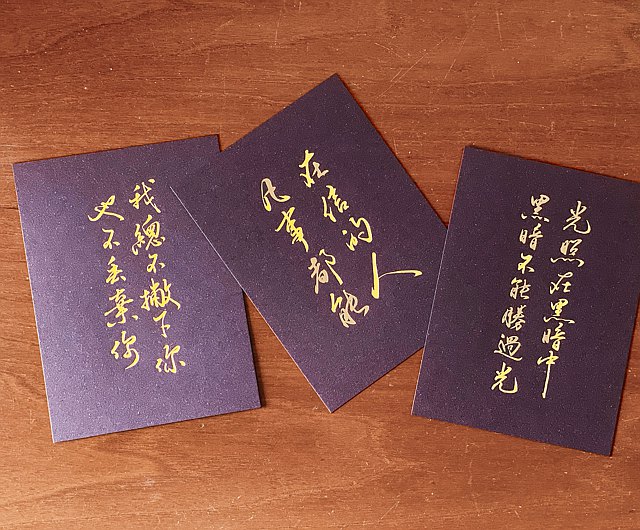 我總不撇下你
也不丟棄你
在信的人
凡事都能
光照在黑暗中
黑暗不能勝過光